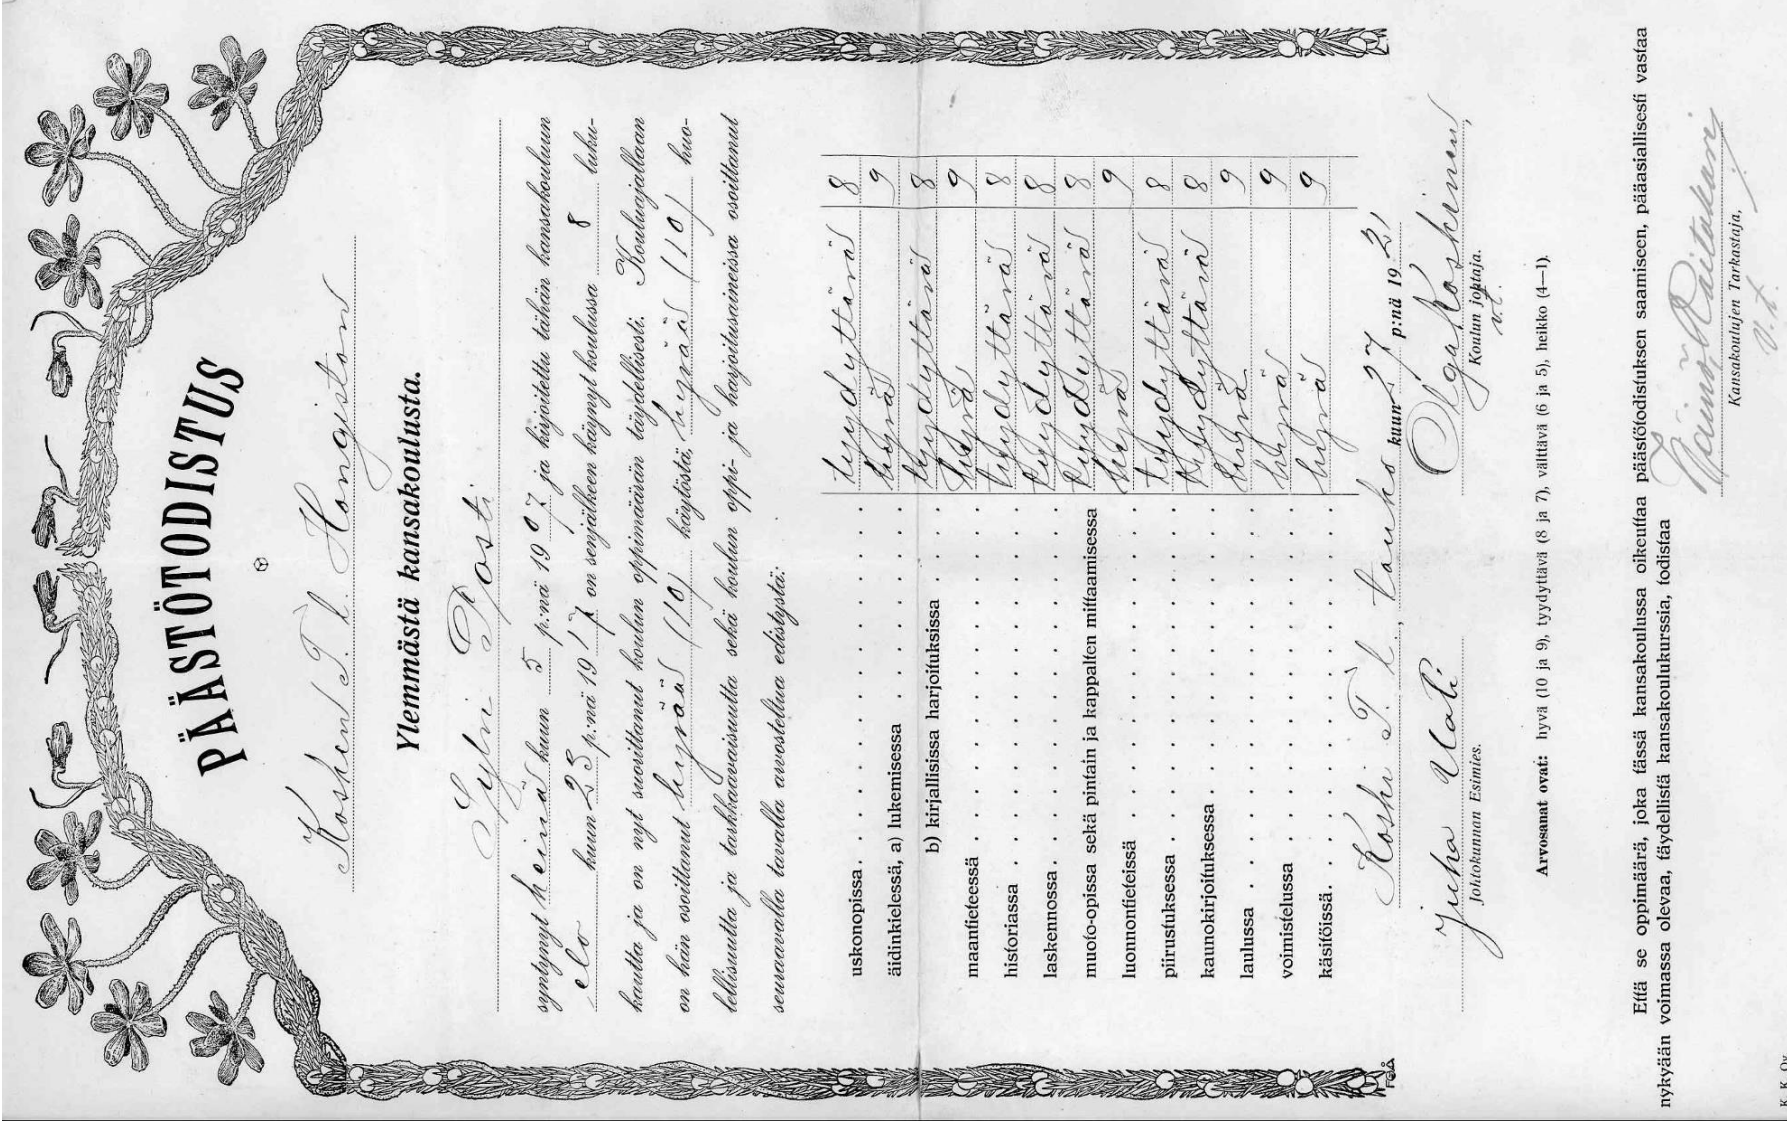 PÄÄSTÖTODISTUS
Kosken T. l. Hongiston
Ylemmästä kansakoulusta.
Sylvi Posti
syntynyt heinä kuun 5 p:nä 1907 ja kirjoitettu tähän kansakouluun
elo kuun 25 p:nä 1917 on senjälkeen käynyt koulussa 8 luku-
kautta ja on nyt suorittanut koulun oppimäärän täydellisesti. Kouluajallaan
on hän osoittanut hyvää (10) käytöstä, hyvää (10) huo-
lellisuutta ja tarkkaavaisuutta sekä koulun oppi- ja harjoitusaineissa osoittanut
seuraavalla tavalla arvosteltua edistystä:
uskonopissa . . . . . . . . . . tyydyttävä 8
äidinkielessä, a) lukemisessa . . . . . . hyvä 9
b) kirjallisissa harjoituksissa . . . tyydyttävä 8
maantieteessä . . . . . . . . . . hyvä 9
historiassa . . . . . . . . . . tyydyttävä 8
laskennossa . . . . . . . . . . tyydyttävä 8
muoto-opissa sekä pintain ja kappalten mittaamisessa tyydyttävä 8
luonnontieteissä . . . . . . . . . . hyvä 9
piirustuksessa . . . . . . . . . . tyydyttävä 8
kaunokirjoituksessa . . . . . . . . tyydyttävä 8
laulussa . . . . . . . . . . . hyvä 9
voimistelussa . . . . . . . . . . hyvä 9
käsitöissä . . . . . . . . . . . hyvä 9
Koski T. l., touko kuun 27 p:nä 1921
Juha Olga Koskinen
Johtokunnan Esimies. Koulun johtaja.
v.t.
Arvosanat ovat: hyvä (10 ja 9), tyydyttävä (8 ja 7), välttävä (6 ja 5), heikko (4—1).
Että se oppimäärä, joka tässä kansakoulussa oikeuttaa päästötodistuksen saamiseen, pääasiallisesti vastaa
nykyään voimassa olevaa, täydellistä kansakoulukurssia, todistaa
Väinö Raitakari
Kansakoulujen Tarkastaja,
v. t.
K. K. Oy.